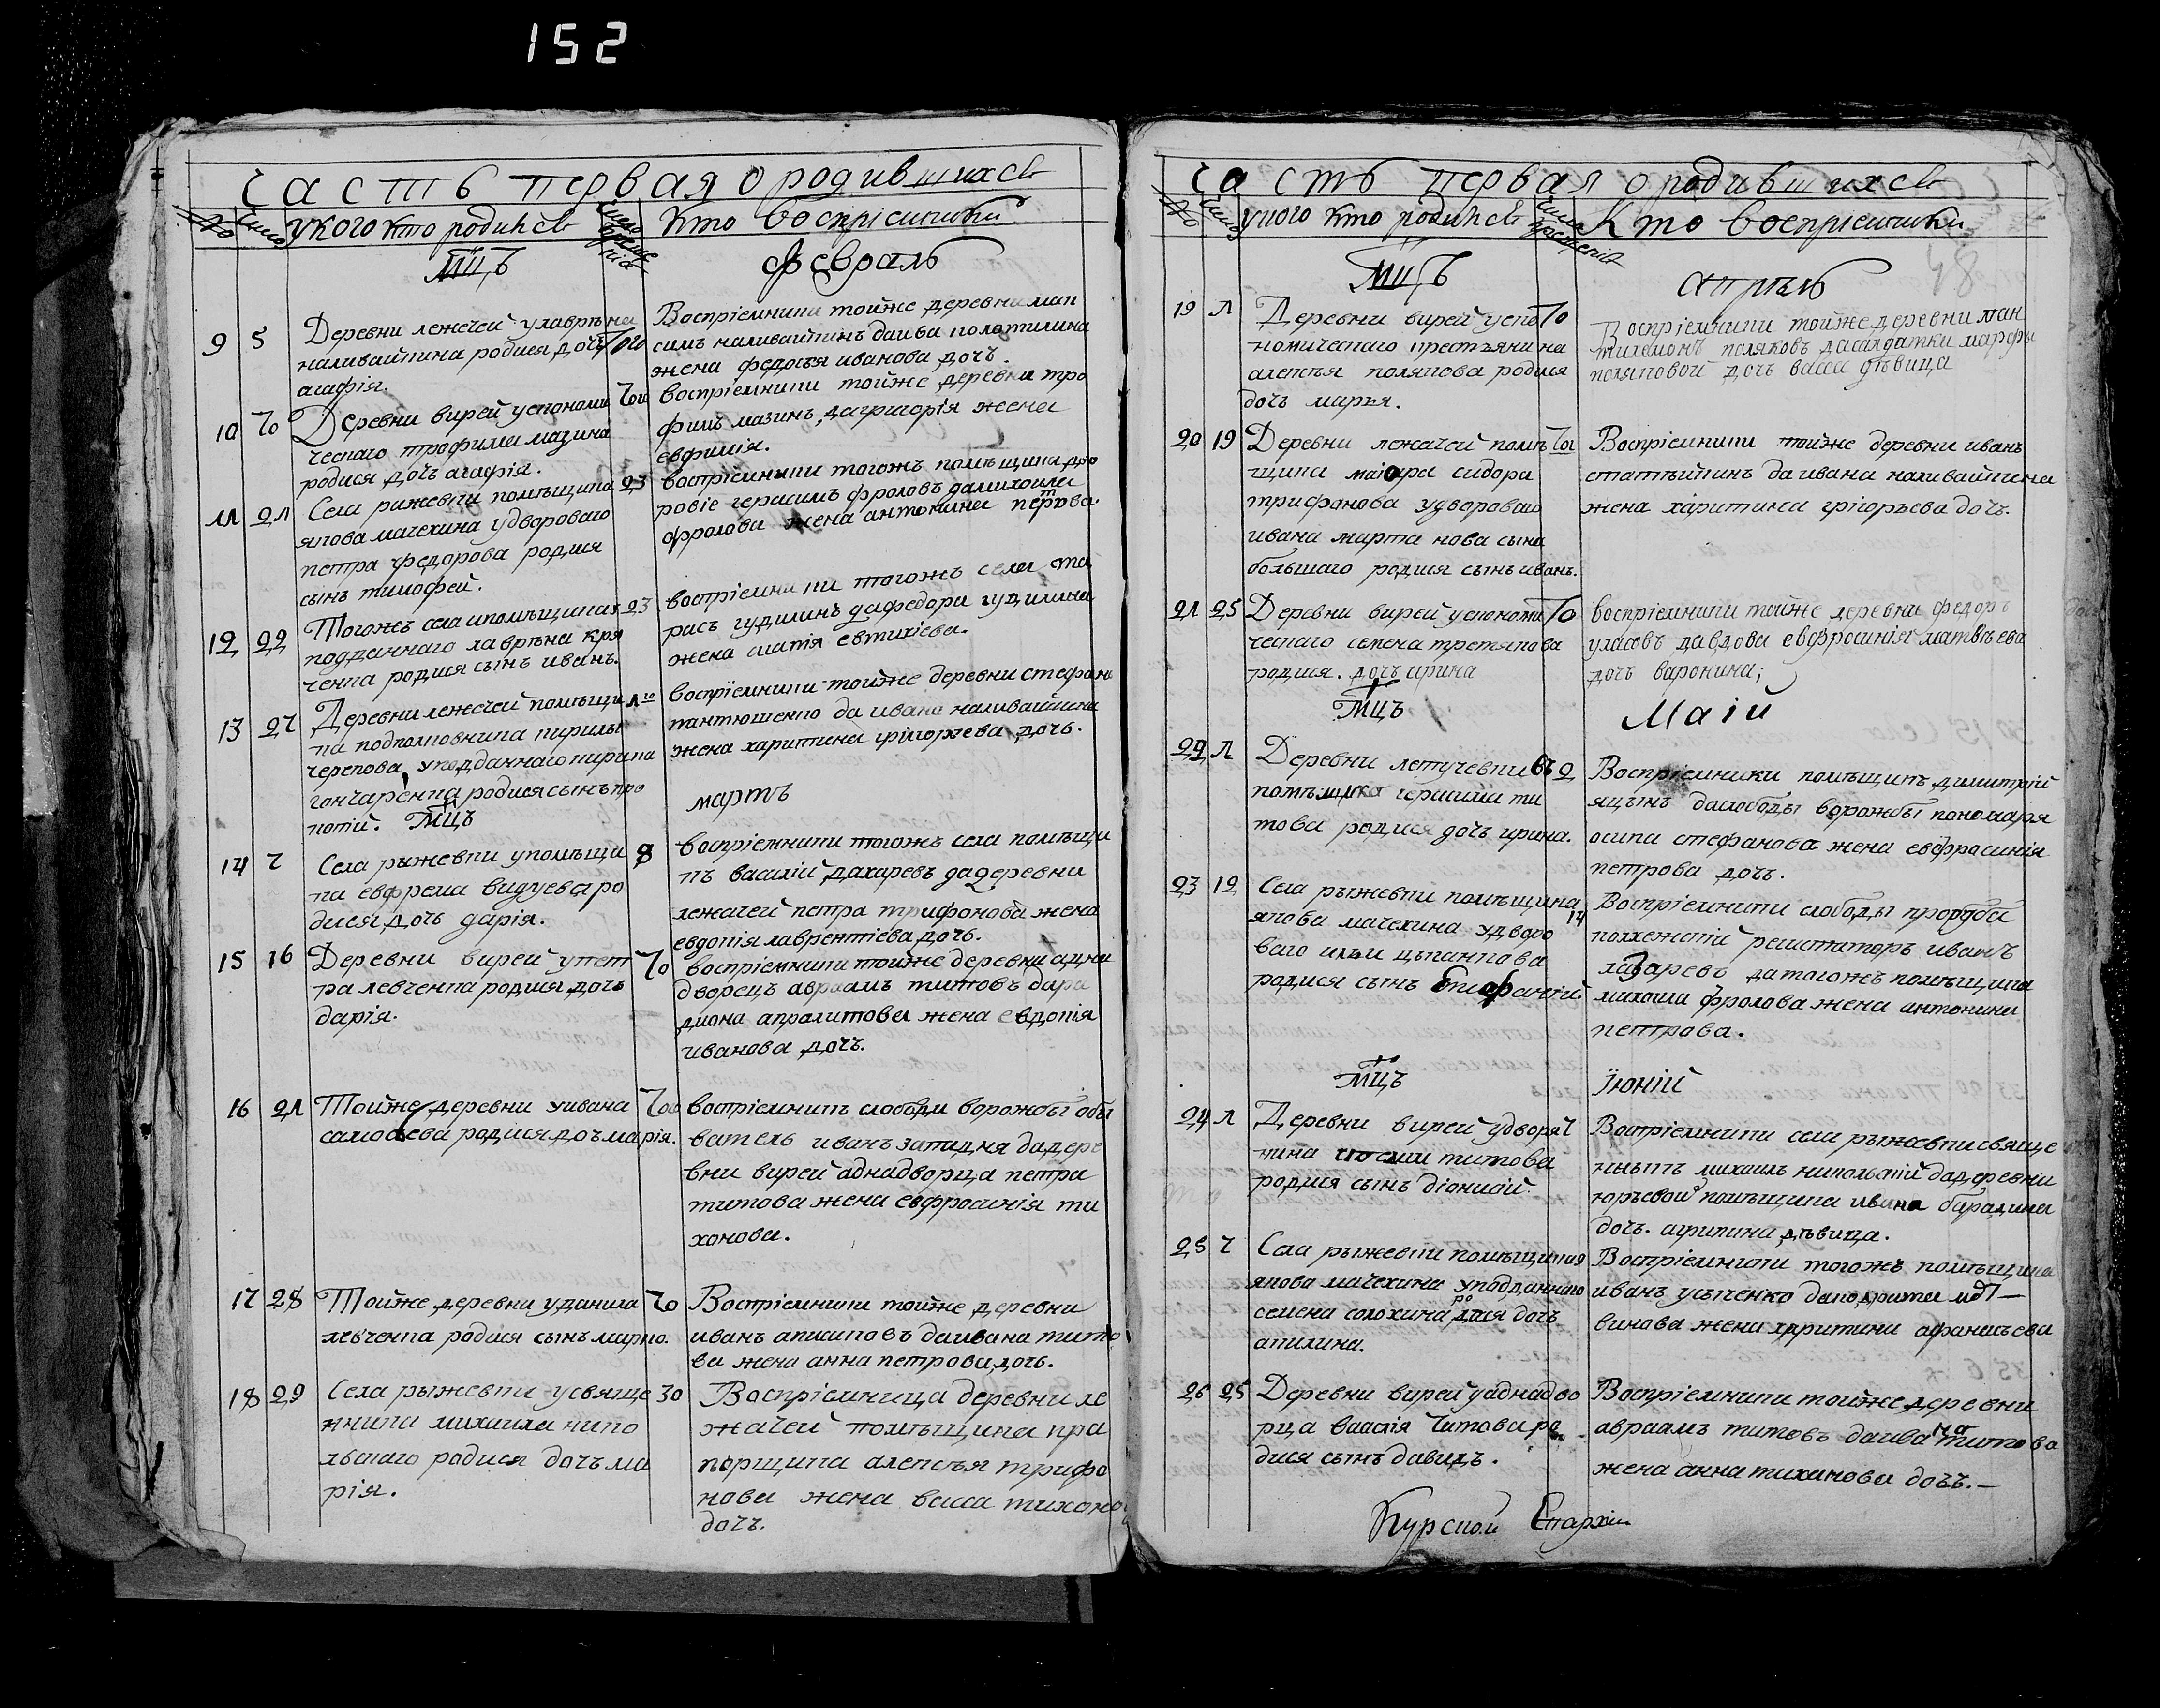 152
Часть первая о родившихся
№ число у кого кто родился число крещения кто воспрiемники
Мцъ февраль
9 5 Деревни лежачей у лаврѣна
наливайпина родися дочь
агафiя.
Воспрiемники тойже деревни мак
симъ наливайпинъ да ива полотилина
жена федосья иванова дочь.
10 Деревни вирей у економи
ческаго трофима мазина
родися дочь агафiя.
воспрiемники тойже деревни тро
фимъ мазинъ, да григорiя жена
евфимiя.
11 21 Села рижевки помѣщика 23
якова мачехина у двороваго
петра федорова родися
сынъ тимофей.
воспрiемники тогожъ помѣщика дво
ровiе герасимъ фроловъ да михоила
фролова жена антонина петрова.
12 22 Тогожъ села помѣщика 23
подданнаго лаврѣна кра
ченка родися сынъ иванъ.
воспрiемники тогожъ села та
расъ гудилинъ да федора гудилина
жена агатiя евтихiева.
13 27 Деревни лежечей помѣщи
ка подполковника кирилы
черепова, у подданнаго кирика
гончаренка родися сынъ про
копiй. Мцъ
воспрiемники тойже деревни стефанъ
пантюшенко да ивана наливайпина
жена харитина григорьева дочь.
мартъ
14 7 Села рыжевки у помѣщи 8
ка евфрема видуева ро
дися дочь дарiя.
воспрiемники тогожъ села помѣщи
къ василiй дахаревъ да деревни
лежачей петра трифонова жена
евдокiя лаврентiева дочь.
15 16 Деревни вирей у пет
ра левченка родися дочь
дарiя.
воспрiемники тойже деревни адна
дворецъ авраамъ титовъ да ра
диона апралитова жена евдокiя
иванова дочь.
16 21 Тойже деревни у ивана
самосѣева родися дочь марiя.
воспрiемникъ слободы ворожбы обы
ватель иванъ западня да дере
вни вирей аднадворца петра
титова жена евфросинiя ти
хонова.
17 28 Тойже деревни у данила
левченка родися сынъ марко.
Воспрiемники тойже деревни
иванъ аписиповъ да ивана тито
ва жена анна петрова дочь.
18 29 Села рыжевки у свяще 30
нника михаила нико
льскаго родися дочь ма
рiя.
Воспрiемница деревни ле
жачей помѣщика пра
порщика алексѣя трифо
нова жена васса тихоно
дочь.
Часть первая о родившихся
№ число у кого кто родился число крещения Кто воспрiемники
Мцъ апрѣль
19 1 Деревни вирей у еко
номическаго крестьянина
алексѣя полякова родися
дочь марья.
Воспрiемники тойже деревни пан
тилемонъ поляковъ да салдатки марфы
поляковой дочь васса дѣвица
20 19 Деревни лежачей помѣ
щика маiора сидора
трифонова у двороваго
ивана мартанова сына
большаго родися сынъ иванъ.
Воспрiемники тойже деревни иванъ
статьпинъ да ивана наливайпина
жена харитина григорьева дочь.
21 25 Деревни вирей у економи
ческаго семена третякова
родися. дочь ирина
воспрiемники тойже деревни федоръ
уласовъ да вдова евфросинiя матвѣева
дочь варонина;
Мцъ Маiй
22 1 Деревни летучевки 2
помѣщика герасима ти
това родися дочь ирина.
Воспрiемники помѣщикъ димитрiй
яцынъ да слободы ворожбы пономаря
осипа стефанова жена евфросинiя
петрова дочь.
23 12 Села рыжевки помѣщика 14
якова мачехина у дворо
ваго ильи цыганкова
родися сынъ Епифанiй
Воспрiемники слободы проруби
коллежскiй регистаторъ иванъ
лазаревъ да тогожъ помѣщика
михоила фролова жена антонина
петрова.
Мцъ Iюнiй
24 1 Деревни вирей у дворян
нина титова
родися сынъ дiонисiй.
Воспрiемники села рыжевки свяще
нникъ михаилъ никольскiй да деревни
юрьевой помѣщика ивана барадина
дочь. агрипина дѣвица.
25 7 Села рыжевки помѣщика 9
якова мачехина у подданнаго
семена солохина родися дочь
акилина.
Воспрiемники тогожъ помѣщика
иванъ усыченко да кодрата лит—
винова жена харитина афанасьева
26 25 Деревни вирей у аднадво
рца васлiя титова ро
дися сынъ давидъ.
Воспрiемники тойже деревни
авраамъ титовъ да ивана титова
жена анна тиханова дочь.—
Курской Епархiи